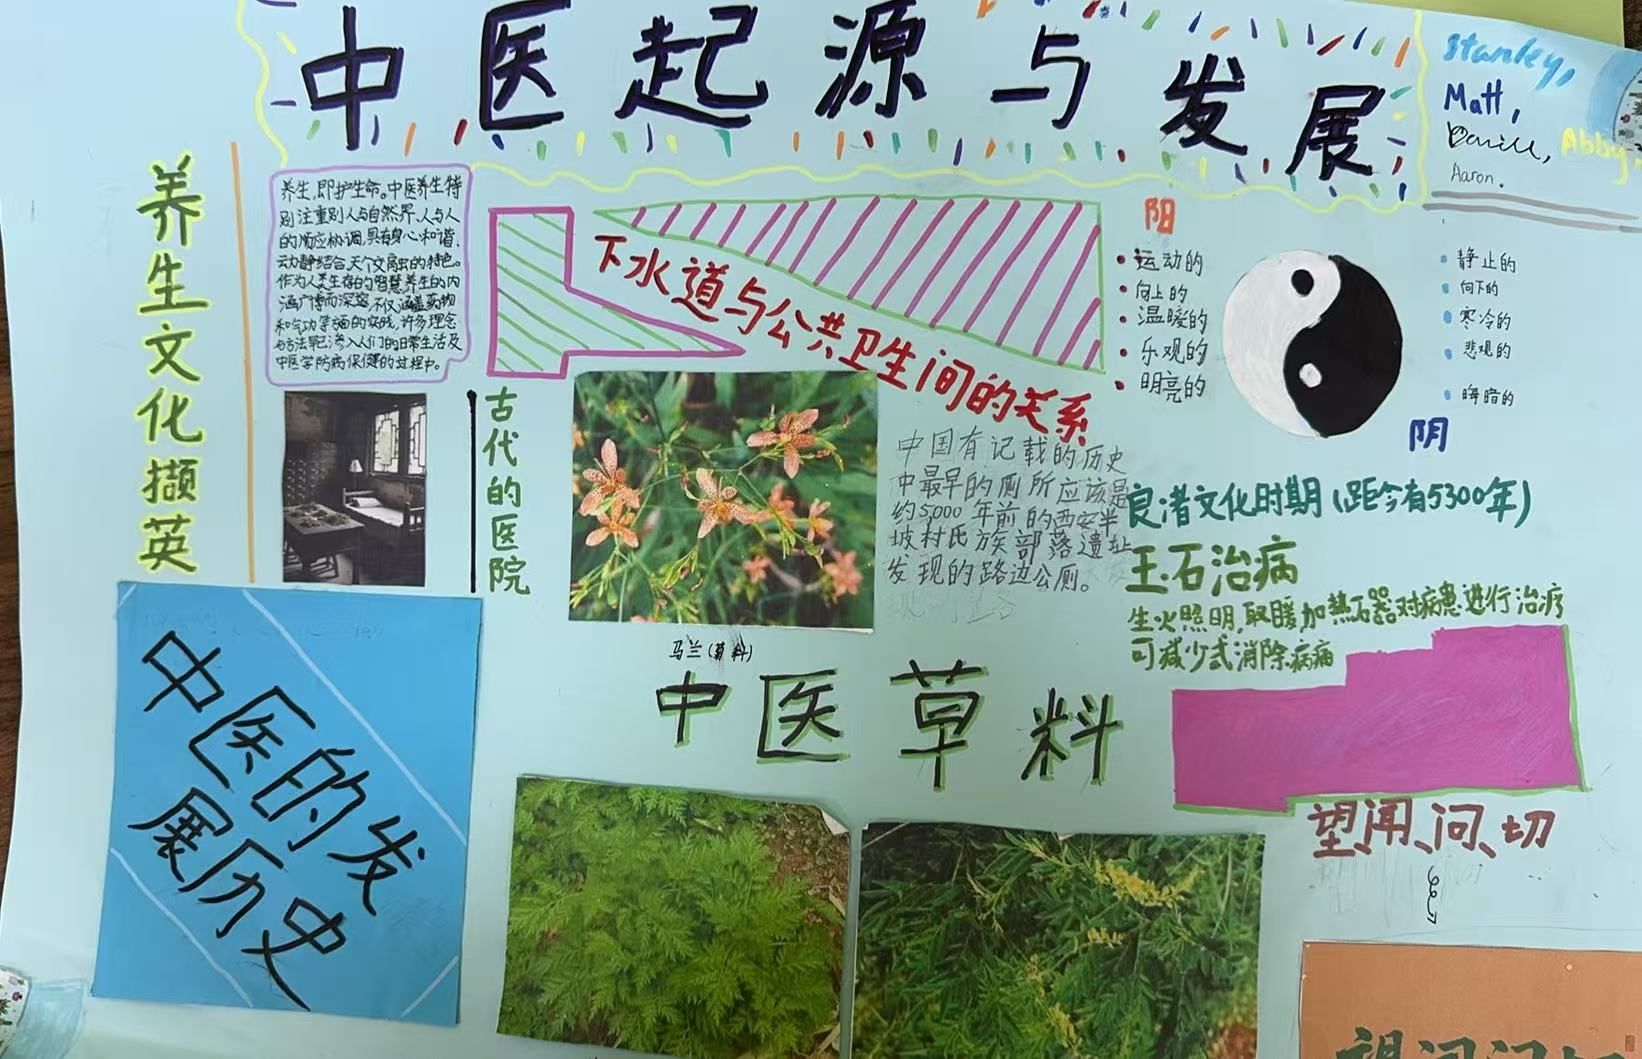 中医起源与发展
Stanley,
Matt,
Aaron.
Abby
养生文化撷英
养生,即护生命。中医养生特
别注重别人与自然界、人与人
的顺应协调,具有身心和谐、
动静结合、天个文局虫的特色。
作为人类生存的智慧养生的内
涵广博而深邃,不仅涵盖药物
和气功等方面的实践,许多理念
与方法早已渗入人们的日常生活及
中医学防病保健的过程中。
下水道与公共卫生间的关系
阳
运动的
向上的
温暖的
乐观的
明亮的
静止的
向下的
寒冷的
悲观的
晦暗的
阴
古代的医院
中国有记载的历史
中最早的厕所应该是
约5000年前的西安半
坡村氏族部落遗址
发现的路边公厕。
良渚文化时期(距今有5300年)
玉石治病
生火照明,取暖,加热石器对病患进行治疗
可减少或消除病痛
马兰(草料)
中医草料
中医的发
展历史
望、闻、问、切